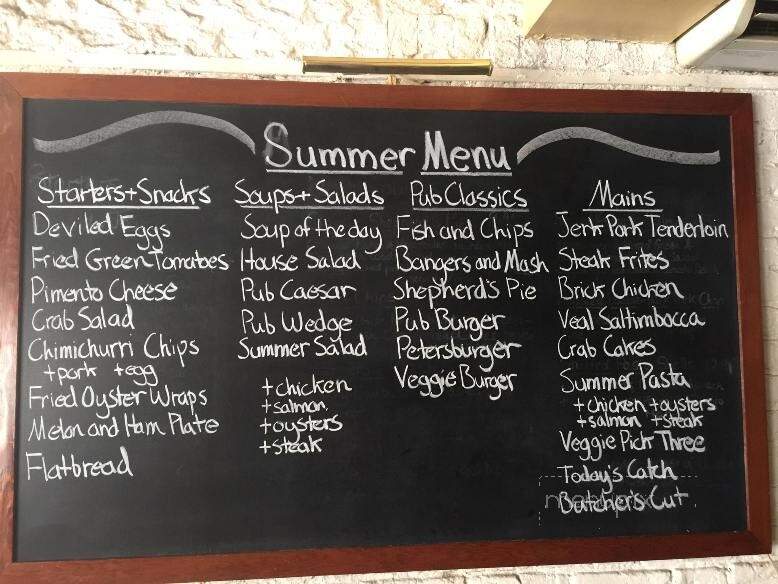 Summer Menu
Starters+Snacks
Deviled Eggs
Fried Green Tomatoes
Pimento Cheese
Crab Salad
Chimichurri Chips
+pork +egg
Fried Oyster Wraps
Melon and Ham Plate
Flatbread
Soups+Salads
Soup of the day
House Salad
Pub Caesar
Pub Wedge
Summer Salad
+chicken
+salmon
+oysters
+steak
Pub Classics
Fish and Chips
Bangers and Mash
Shepherd's Pie
Pub Burger
Petersburger
Veggie Burger
Mains
Jerk Pork Tenderloin
Steak Frites
Brick Chicken
Veal Saltimbocca
Crab Cakes
Summer Pasta
+chicken +oysters
+salmon +steak
Veggie Pick Three
Today's Catch
Butcher's Cut